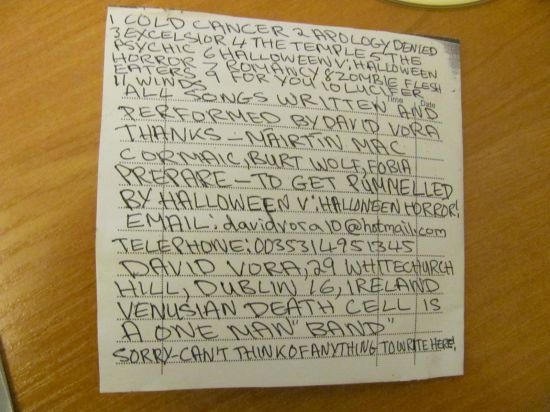 1 COLD CANCER 2 APOLOGY DENIED
3 EXCELSIOR 4 THE TEMPLE OF THE
PSYCHIC 6 HALLOWEEN V: HALLOWEEN
HORROR 7 ROMANCY 8 ZOMBIE FLESH
EATERS 9 FOR YOU 10 LUCIFER
11 WINGS
Time Date
ALL SONGS WRITTEN AND
PERFORMED BY DAVID VORA
THANKS - MAIRTIN MAC
CORMAIC, BURT WOLF, FOBIA
PREPARE - TO GET PUMMELLED
BY HALLOWEEN V: HALLOWEEN HORROR!
EMAIL: davidvora10@hotmail.com
TELEPHONE: 0035314951345
DAVID VORA, 29 WHITECHURCH
HILL, DUBLIN 16, IRELAND
VENUSIAN DEATH CELL IS
A ONE MAN "BAND"
SORRY-CAN'T THINK OF ANYTHING TO WRITE HERE!